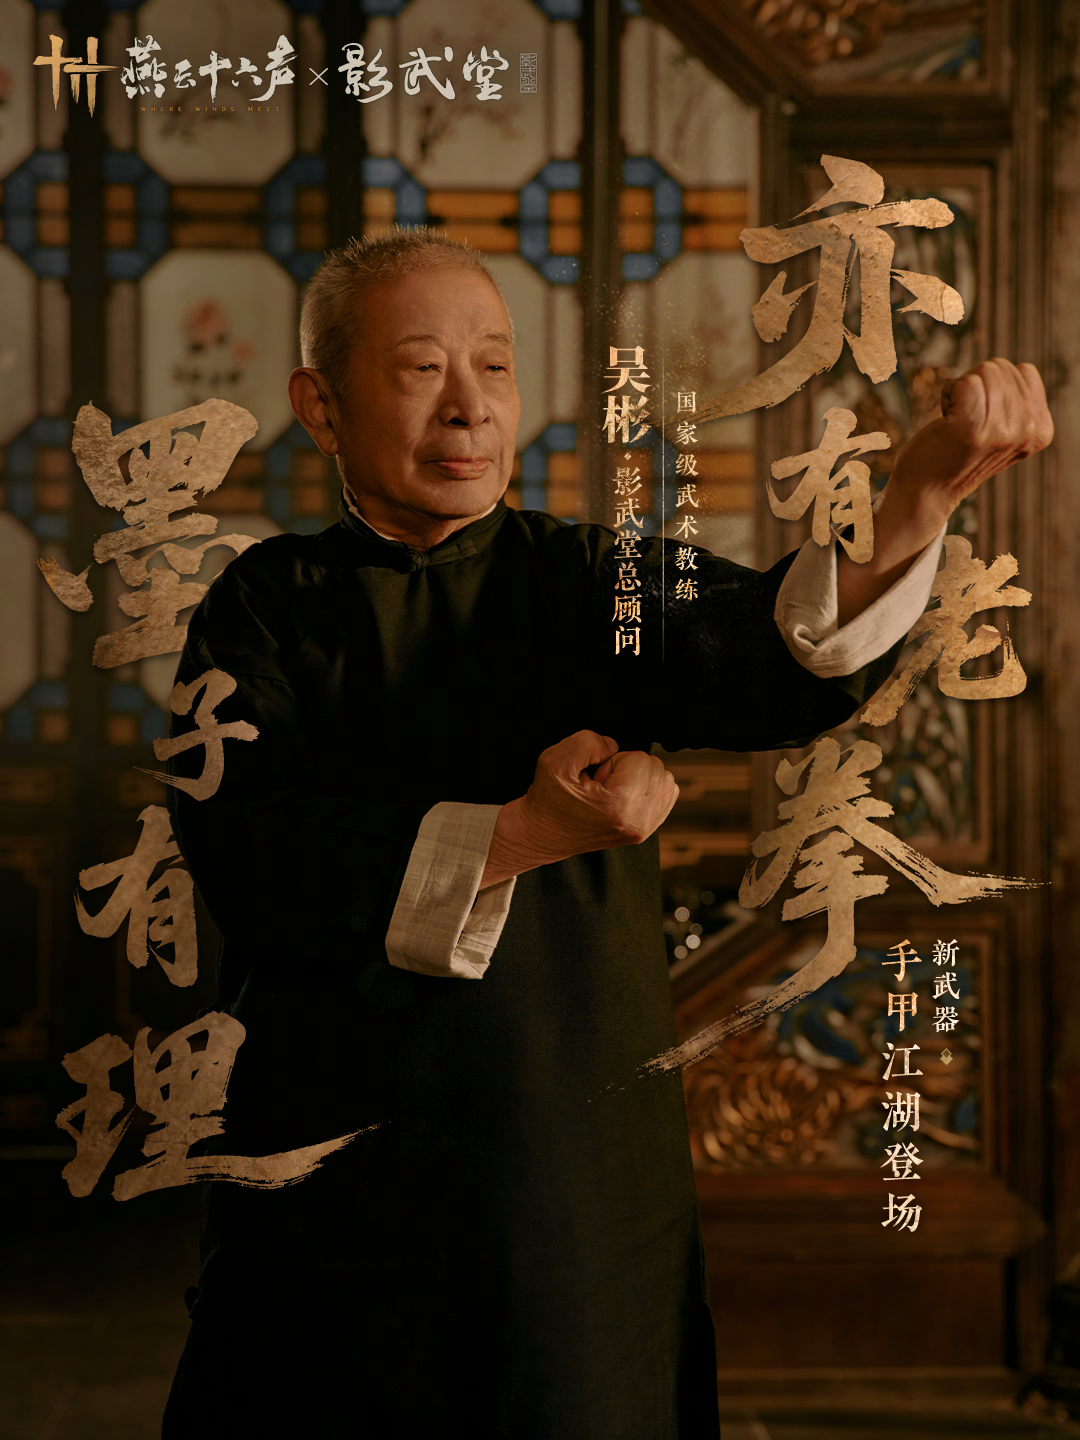 燕云十六声×影武堂
WHERE WINDS MEET
墨子有理
亦有老拳
国家级武术教练
吴彬·影武堂总顾问
新武器
手甲江湖登场